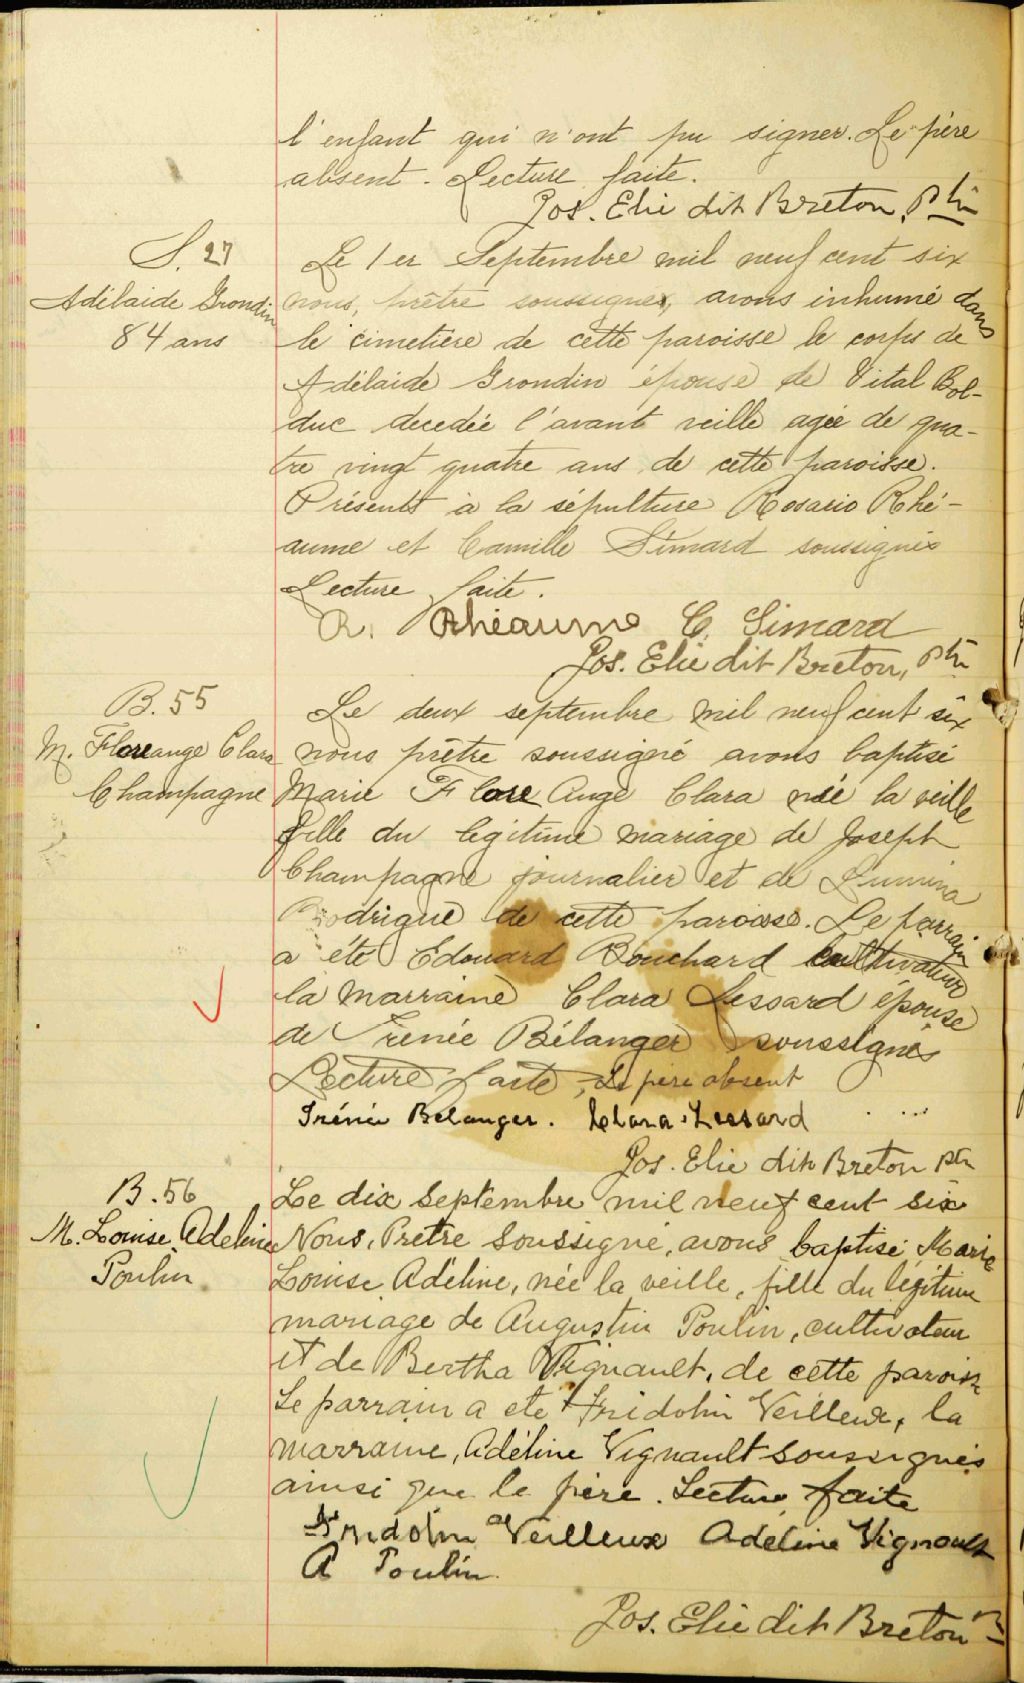 l'enfant qui n'ont pu signer. Le père
absent. Lecture faite.
Jos. Elie dit Breton, Ptre
S. 27
Adélaide Grondin
84 ans
Le 1er Septembre mil neuf cent six
nous, prêtre soussigné, avons inhumé dans
le cimetière de cette paroisse le corps de
Adélaide Grondin épouse de Vital Bol-
duc decedée l'avant veille agée de qua-
tre vingt quatre ans de cette paroisse.
Présents à la sépulture Rosario Rhé-
aume et Camille Simard soussignés
Lecture faite.
R. Rhéaume C. Simard
Jos. Elie dit Breton, Ptre
B. 55
M. Floreange Clara
Champagne
Le deux septembre mil neuf cent six
nous prêtre soussigné avons baptisé
Marie Flore Ange Clara née la veille
fille du légitime mariage de Joseph
Champagne journalier et de Lumina
Rodrigue de cette paroisse. Le parrain
a été Edouard Bouchard cultivateur
la marraine Clara Lessard épouse
de Irenée Bélanger soussignés
Lecture faite, Le père absent
Irénée Belanger. Clara Lessard
Jos. Elie dit Breton ptre
B. 56
M. Louise Adeline
Poulin
Le dix Septembre mil neuf cent six
Nous, Prêtre Soussigné, avons baptisé Marie
Louise Adéline, née la veille, fille du légitime
mariage de Augustin Poulin, cultivateur
et de Bertha Vignault, de cette paroisse
Le parrain a été Fridolin Veilleux, la
marraine, Adéline Vignault soussignés
ainsi que le père. Lecture faite
Fridolin Veilleux Adéline Vignault
A Poulin
Jos. Elie dit Breton